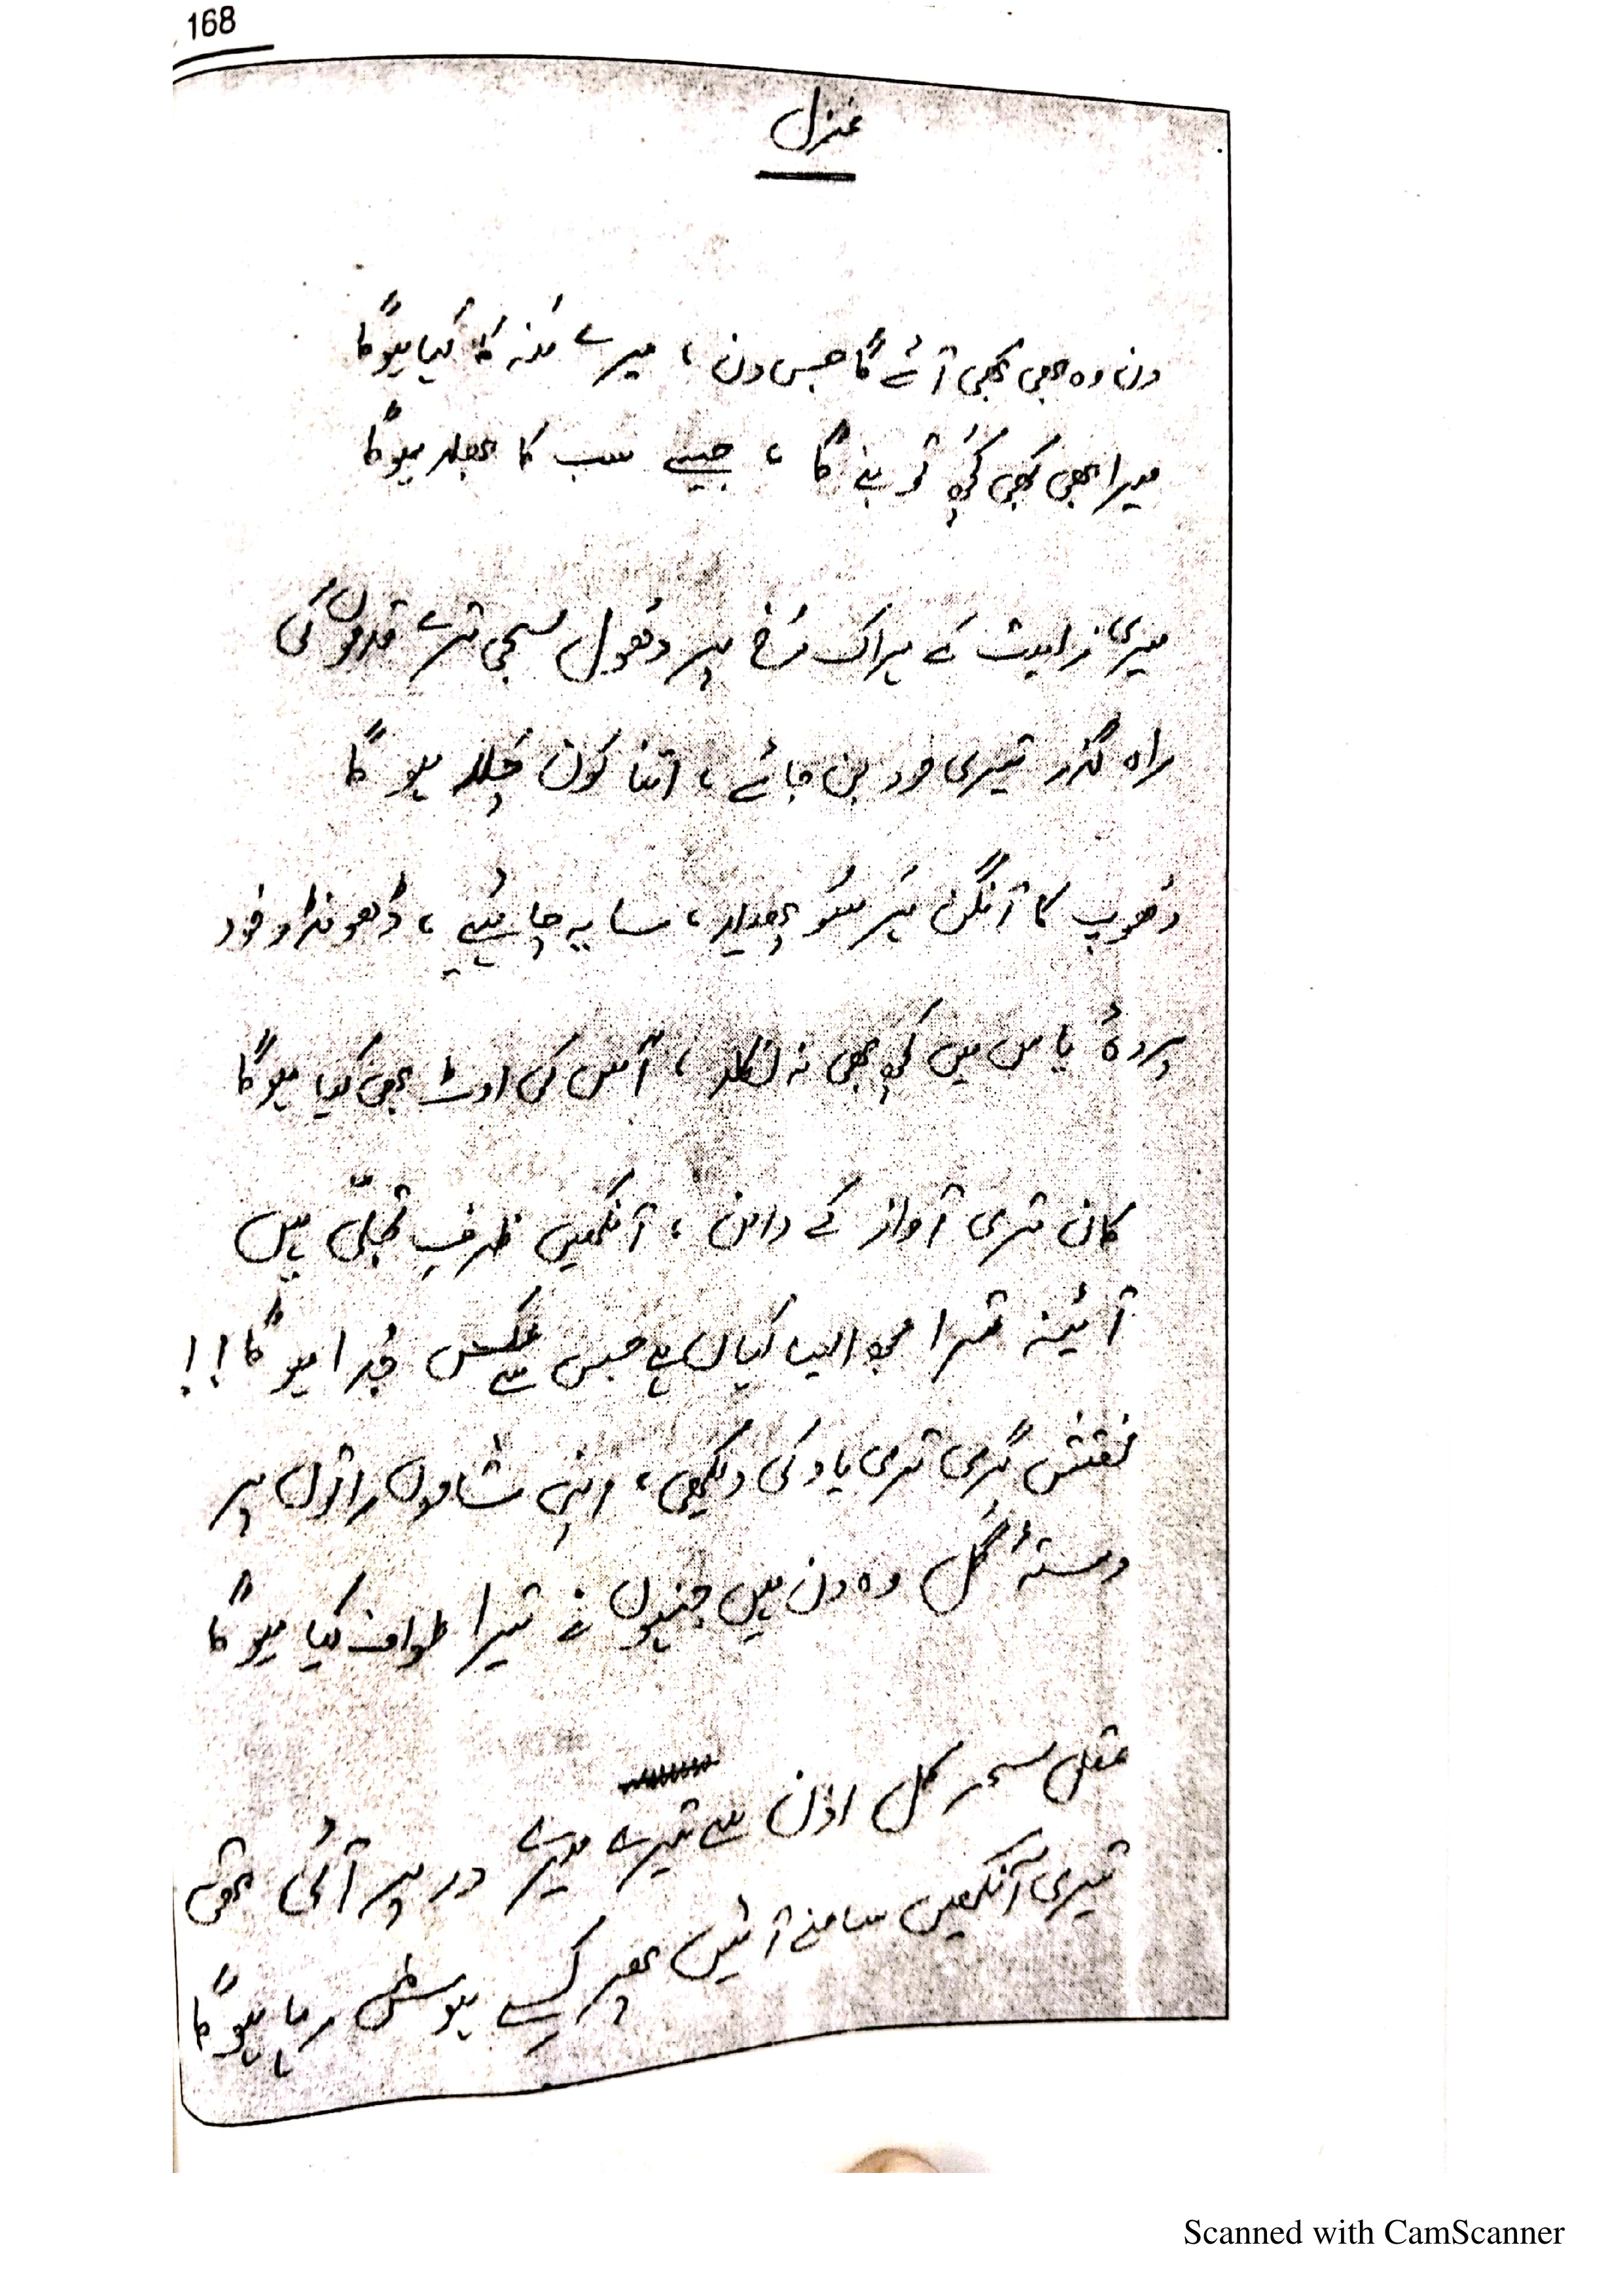 168
غزل
دن وہ بھی کبھی آئے گا جس دن ، میرے مَنہ کا کہا ہوگا
میرا بھی کبھی کچھ تو بنے گا ، جیسے سب کا بھلا ہوگا
میری ذات کے ہر اک رُخ پر دُھول سجی ترے قدموں کی
راہ گزر تیری خود بن جائے ، اتنا کون چلا ہوگا
دُھوپ کا آنگن ہر سُو پھیلا ، سایہ چاہئیے ، ڈھونڈو خود
پردۂ یاس میں کچھ بھی نہ نکلا ، آس کی اوٹ بھی کیا ہوگا
کان تری آواز کے دامن ، آنکھیں ظرفِ تجلّی ہیں
آئینہ ترا مجھ ایسا کہاں ہے جس سے عکس جُدا ہوگا ! !
نقش گری تری یاد کی دیکھی ، اپنی شاموں راتوں پر
دستۂ گل وہ دن ہیں جنہوں نے تیرا طواف کیا ہوگا
عقل سحر کل اذن سے تیرے میرے در پر آئی تھی
تیری آنکھیں سامنے آئیں پھر کسے ہوش رہا ہوگا
Scanned with CamScanner